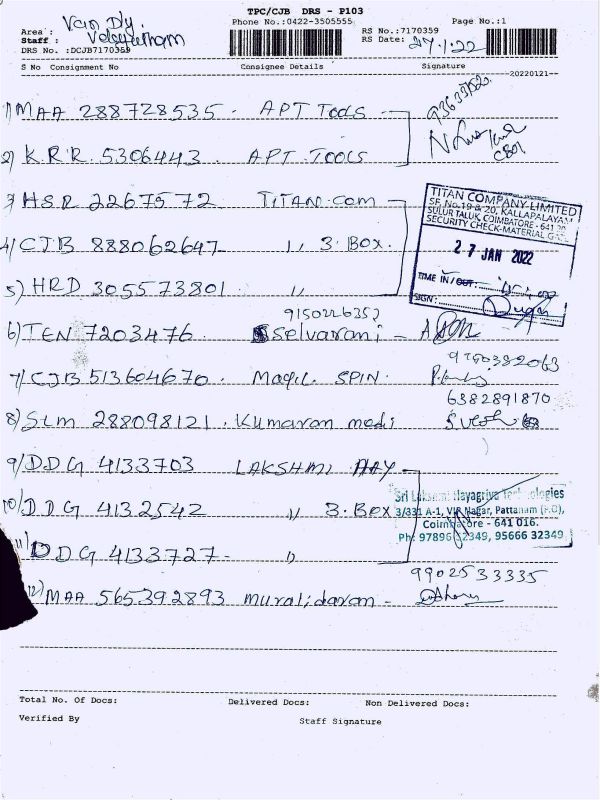 TPC/CJB DRS - P103
Van Dly.
Area :
Phone No.:0422-3505555
Page No.:1
Staff : Velayutham
RS No.:7170359
RS Date: 27/1/22
DRS No. :DCJB7170359
S No Consignment No Consignee Details Signature
20220121--
1) MAA 288728535 . APT Tools
2) K.R.R. 5306443 . APT TOOLS
CBE
3) HSR 22675772 TITAN.Com
4) CJB 888062647 ,, 3. Box.
5) HRD 305573801 ,,
TITAN COMPANY LIMITED
SF. No.19 & 20, KALLAPALAYAM
SULUR TALUK, COIMBATORE - 641
SECURITY CHECK-MATERIAL
27 JAN 2022
TIME IN / OUT :
SIGN :
9150226352
6) TEN 7203476 Selvarani -
9750382063
7) CJB 513604670. Magil SPIN.
6382891870
8) Slm 288098121. Kumaran medi
9) DDG 4133703 LAKSHMI HAY
10) DDG 4132542 ,, 3. Box
11) DDG 4133727- ,,
Sri Lakshmi Hayagriva Technologies
3/331 A-1, VIP Nagar, Pattanam (P.O),
Coimbatore - 641 016.
Ph: 97896 32349, 95666 32349
9902533335
12) MAA 565392893 muralidaran -
Total No. Of Docs: Delivered Docs: Non Delivered Docs:
Verified By Staff Signature